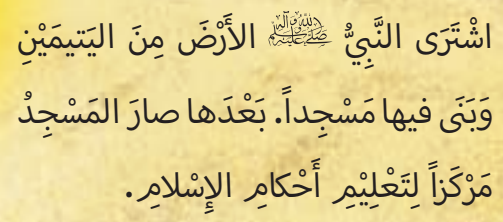 اشْتَرَى النَّبِيُّ ﷺ الأَرْضَ مِنَ اليَتيمَيْنِ
وَبَنَى فيها مَسْجِداً. بَعْدَها صارَ المَسْجِدُ
مَرْكَزاً لِتَعْلِيْمِ أَحْكامِ الإِسْلامِ.